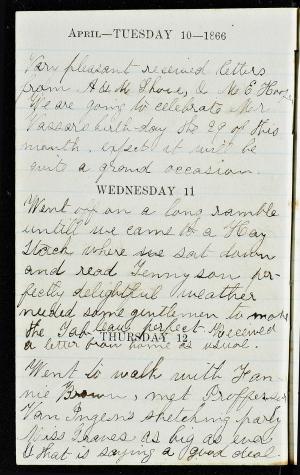 April—TUESDAY 10—1866
Very pleasant received letters
from A & M Thorn, & M E
We are going to celebrate Mr.
Vassar's birth-day the 29 of this
month. expect it will be
quite a grand occasion.
WEDNESDAY 11
Went off on a long ramble
untill we came to a Hay
Stack where we sat down
and read Tennyson per-
fectly delightful weather
needed some gentlemen to make
the perfect Received
a letter from home as usual.
THURSDAY 12
Went to walk with Fan-
nie Brown, met Proffessor
Van Ingen's sketching party
Miss Graves as big as ever
& that is saying a good deal